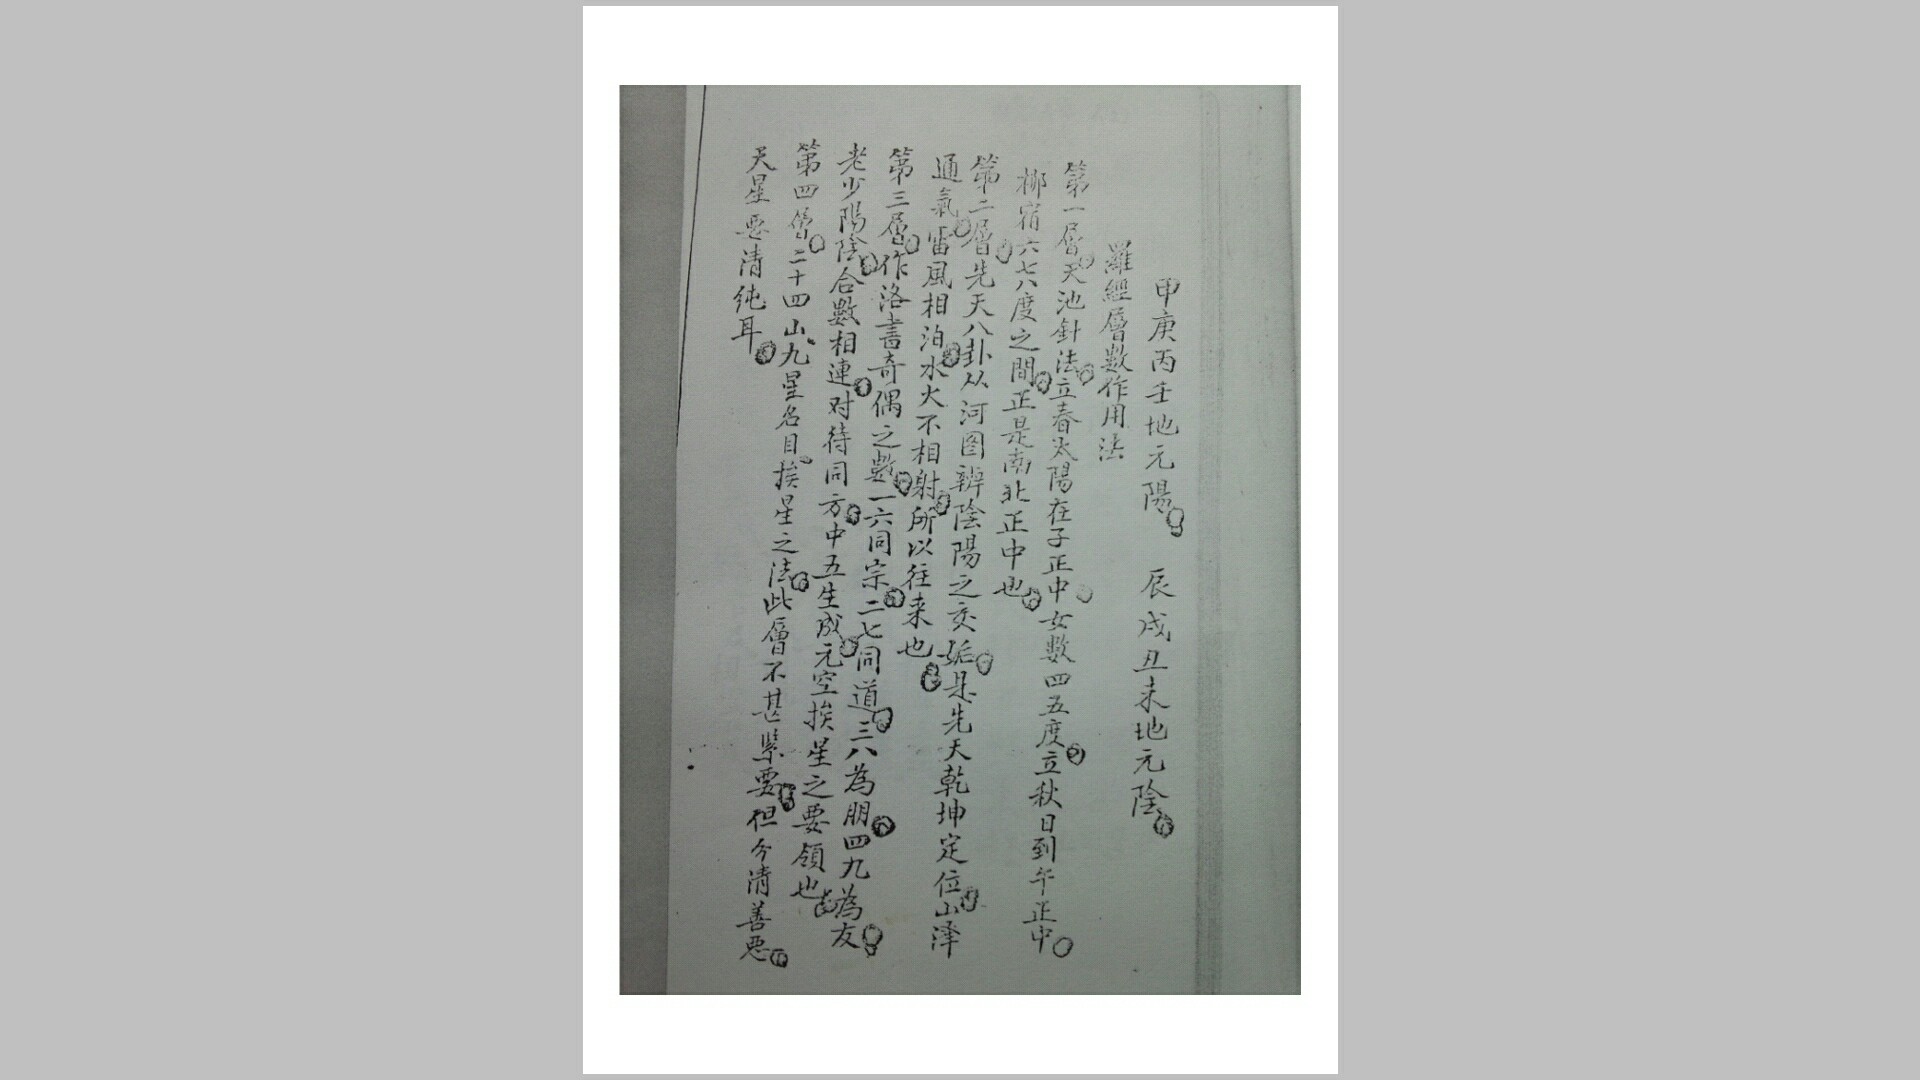 甲庚丙壬地元陽 辰戌丑未地元陰
羅經層數作用法
第一層天池針法立春太陽在子正中女數四五度立秋日到午正中
柳宿六七八度之間正是南北正中也
第二層先天八卦从河图辨陰陽之交姤是先天乾坤定位山泽
通氣雷風相泊水火不相射所以往来也
第三層作洛書奇偶之數一六同宗二七同道三八為朋四九為友
老少陽陰合數相連对待同方中五生成元空挨星之要領也
第四層二十四山九星名目挨星之法此層不甚緊要但分清善惡
天星要清纯耳